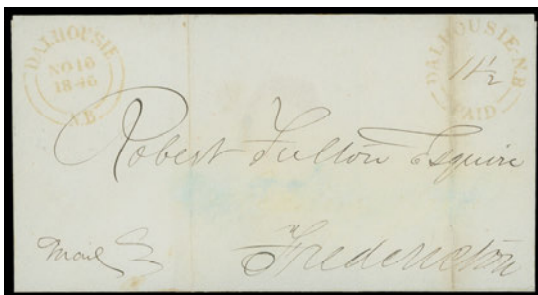 DALHOUSIE
NO 16
1846
N.B
DALHOUSIE N.B
11½
PAID
Robert Fulton Esquire
Mail
Fredericton